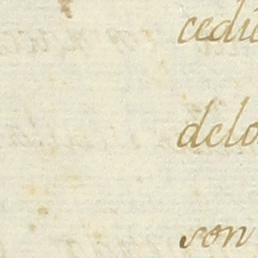 cedu
delo
son